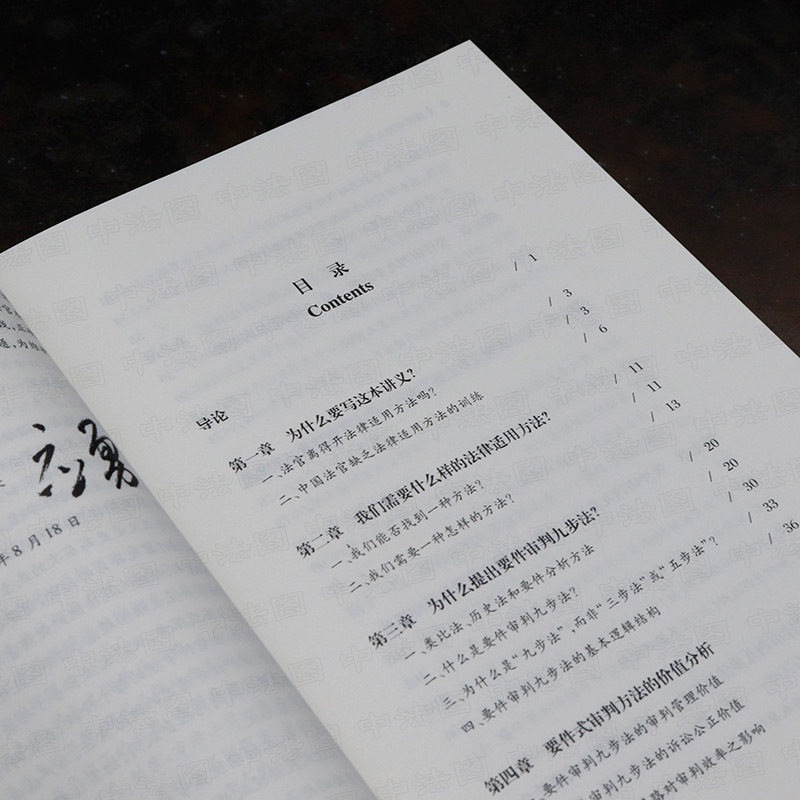 应勇
年8月18日
目录
Contents
导论 / 1
第一章 为什么要写这本讲义？ / 3
一、法官离得开法律适用方法吗？ / 3
二、中国法官缺乏法律适用方法的训练 / 6
第二章 我们需要什么样的法律适用方法？ / 11
一、我们能否找到一种方法？ / 11
二、我们需要一种怎样的方法？ / 13
第三章 为什么提出要件审判九步法？ / 20
一、类比法、历史法和要件分析方法 / 20
二、什么是要件审判九步法？ / 30
三、为什么是“九步法”，而非“三步法”或“五步法”？ / 33
四、要件审判九步法的基本逻辑结构 / 36
第四章 要件式审判方法的价值分析
要件审判九步法的审判管理价值
件审判九步法的诉讼公正价值
路对审判效率之影响
中法图